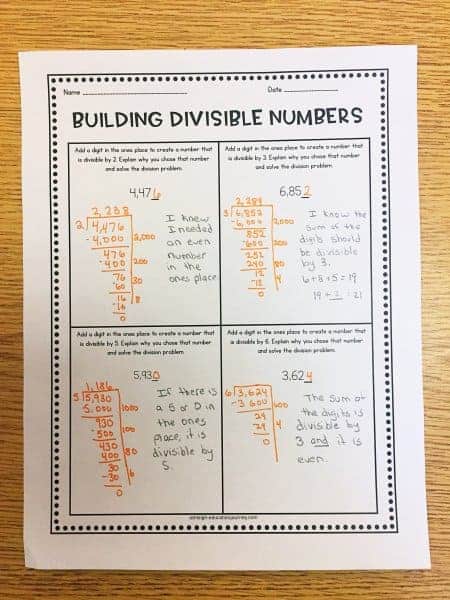 Name
Date
BUILDING DIVISIBLE NUMBERS
Add a digit in the ones place to create a number that
is divisible by 2. Explain why you chose that number
and solve the division problem.
4,476
2,238
2 4,476
-4,000 2,000
476
-400 200
76
-60 30
16
-16 8
0
I knew
I needed
an even
number
in the
ones place
Add a digit in the ones place to create a number that
is divisible by 3. Explain why you chose that number
and solve the division problem.
6,852
2,284
3 6,852
-6,000 2,000
852
-600 200
252
240 80
12
-12 4
0
I know the
sum of the
digits should
be divisible
by 3.
6+8+5=19
19+2=21
Add a digit in the ones place to create a number that
is divisible by 5. Explain why you chose that number
and solve the division problem.
5,930
1,186
5 5,930
5,000 1000
930
-500 100
430
400 80
30
-30 6
0
If there is
a 5 or 0 in
the ones
place, it is
divisible by
5.
Add a digit in the ones place to create a number that
is divisible by 6. Explain why you chose that number
and solve the division problem.
3,624
6 3,624
-3 600 600
24
24 4
0
The sum of
the digits is
divisible by
3 and it is
even.
ashleigh-educationjourney.com